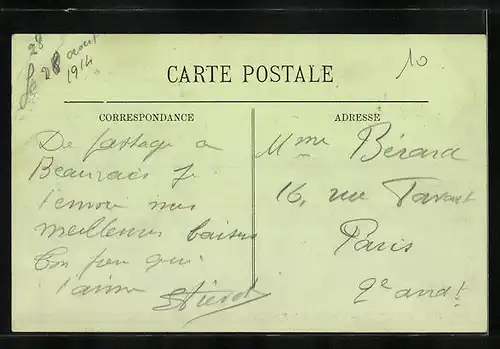 28
Le 28 août
1914
10
CARTE POSTALE
CORRESPONDANCE
ADRESSE
De passage a
Beauvais je
t'envoie mes
meilleurs baisers
Ton qui
t'aime
Mme Bérard
16, rue
Paris
2e arrdt